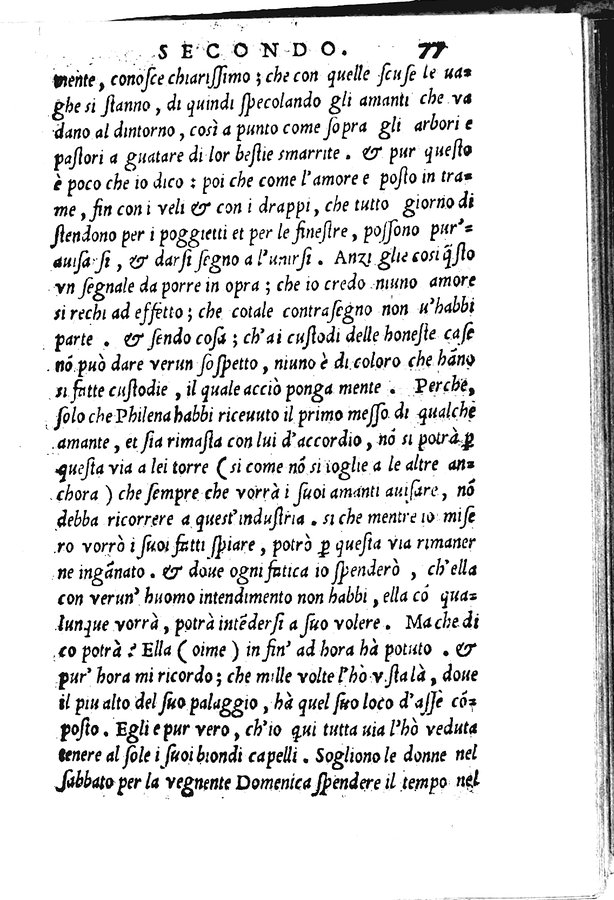 SECONDO. 77
mente, conosce chiarissimo; che con quelle scuse le ua=
ghe si stanno, di quindi specolando gli amanti che va
dano al dintorno, così a punto come sopra gli arbori e
pastori a guatare di lor bestie smarrite. & pur questo
è poco che io dico: poi che come l'amore e posto in tra=
me, fin con i veli & con i drappi, che tutto giorno di
stendono per i poggietti et per le finestre, possono pur'=
auisarsi, & darsi segno a l'unirsi. Anzi glie cosi q̃sto
vn segnale da porre in opra; che io credo niuno amore
si rechi ad effetto; che cotale contrasegno non u'habbi
parte. & sendo cosa; ch'ai custodi delle honeste case
nõ può dare verun sospetto, niuno è di coloro che hãno
si fatte custodie, il quale acciò ponga mente. Perche,
solo che Philena habbi riceuuto il primo messo di qualche
amante, et sia rimasta con lui d'accordio, nõ si potrà ꝑ
questa via a lei torre (si come nõ si toglie a le altre an=
chora) che sempre che vorrà i suoi amanti auisare, nõ
debba ricorrere a quest'industria. si che mentre io mise
ro vorrò i suoi fatti spiare, potrò ꝑ questa via rimaner
ne ingãnato. & doue ogni fatica io spenderò, ch'ella
con verun' huomo intendimento non habbi, ella cõ qua=
lunque vorrà, potrà intẽdersi a suo volere. Ma che di
co potrà? Ella (oime) in fin' ad hora hà potuto. &
pur' hora mi ricordo; che mille volte l'hò vista là, doue
il piu alto del suo palaggio, hà quel suo loco d'asse cõ=
posto. Egli e pur vero, ch'io qui tutta uia l'hò veduta
tenere al sole i suoi biondi capelli. Sogliono le donne nel
sabbato per la vegnente Domenica spendere il tempo nel